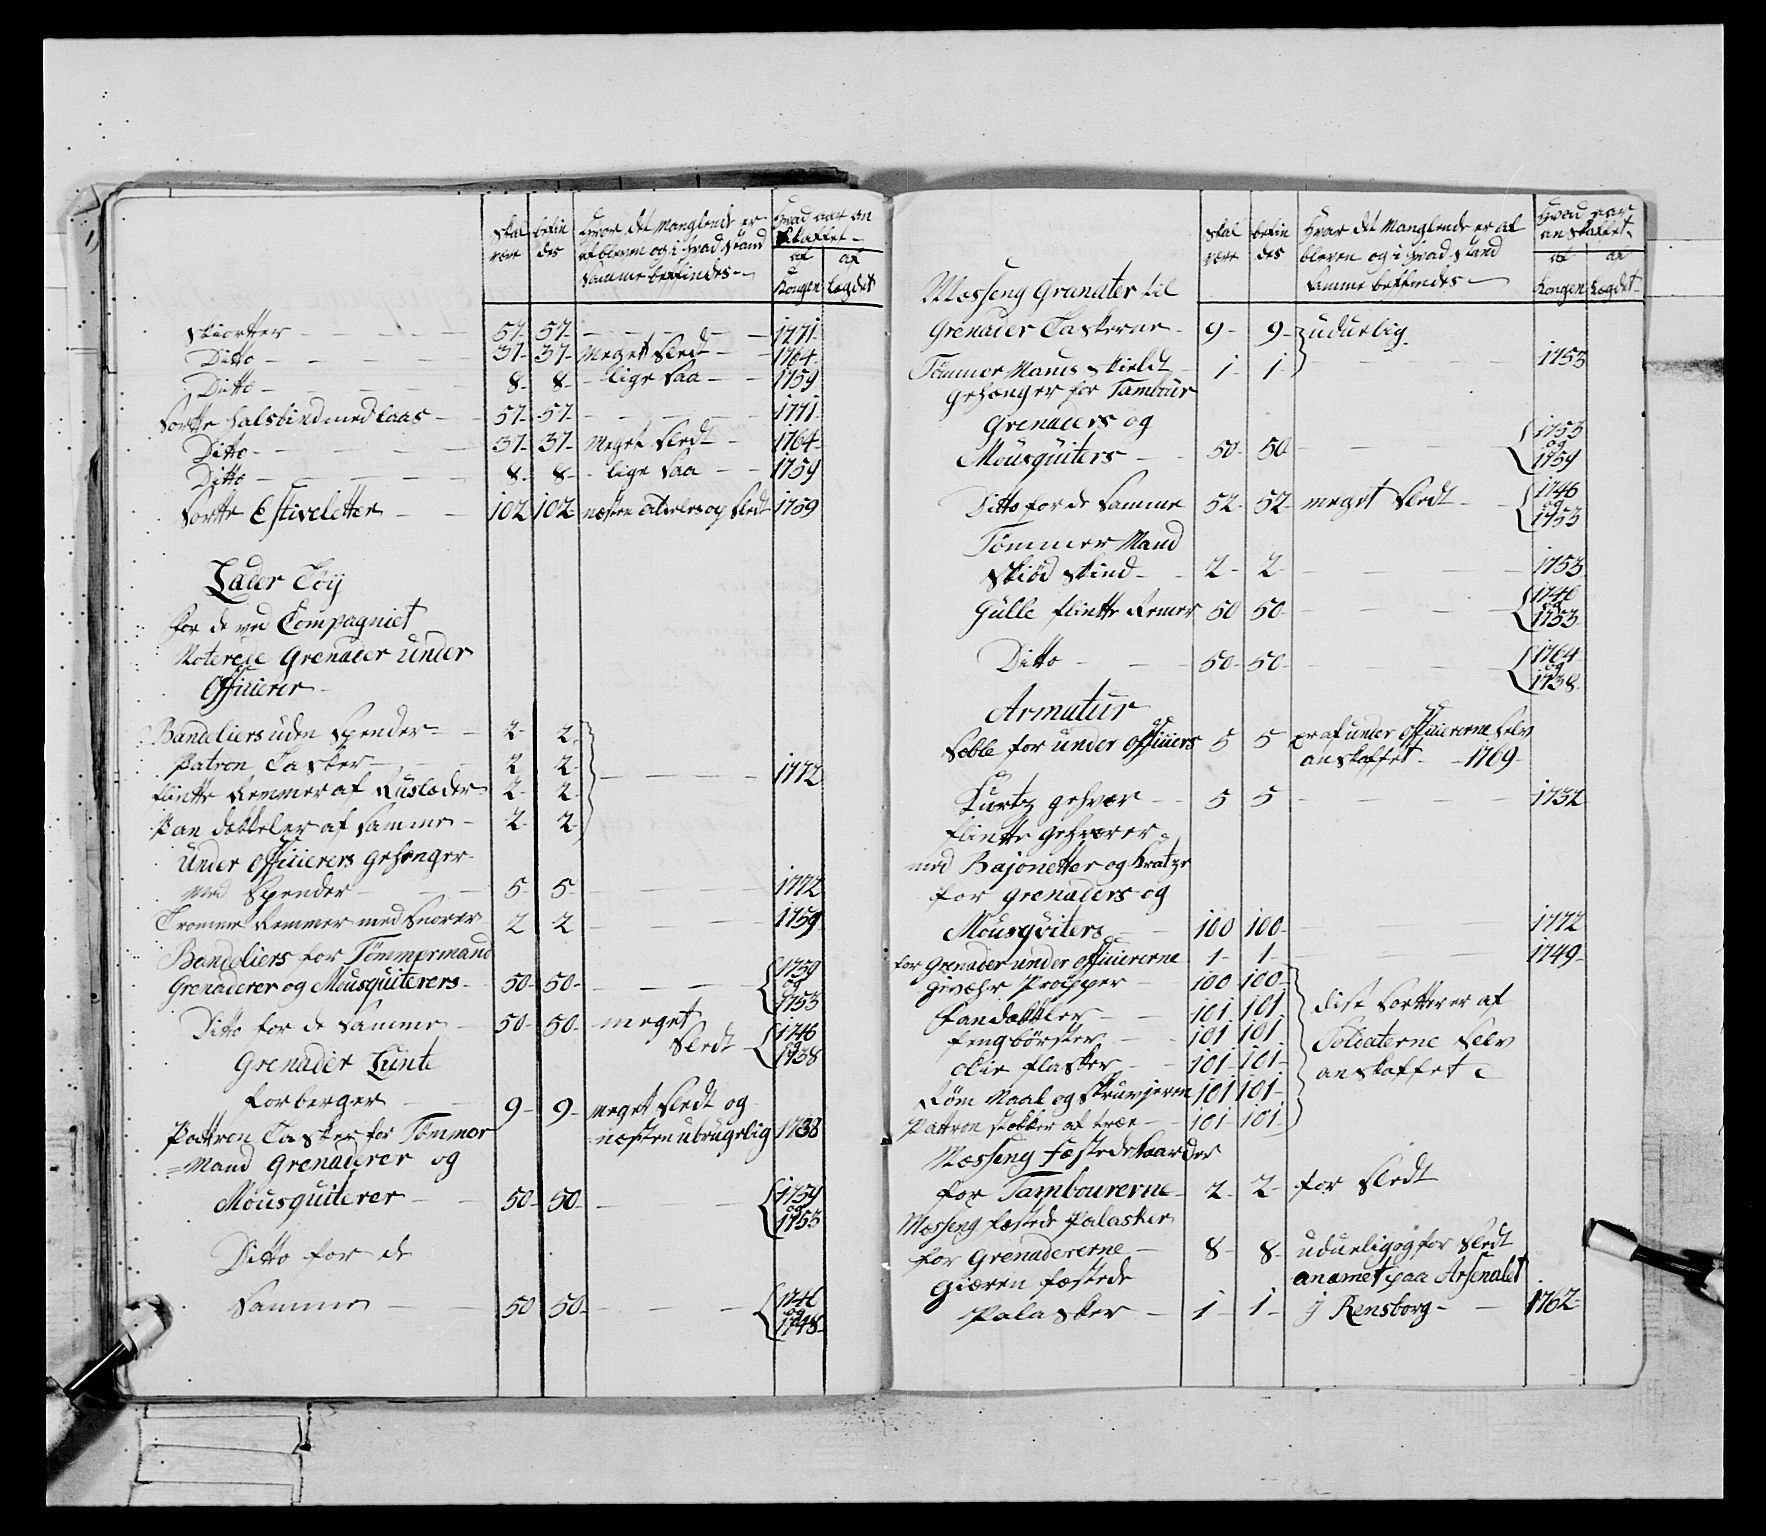 Skal være
befindes
Hvor det Manglende er
afbleven og i hvad Stand
Samme beffindes
Hvad aar an
Skaffet
af Kongen
af Lægdet
Skiorter 57 57 1771
Ditto 37 37 Meget Sledt 1764
Ditto 8 8 lige Saa 1759
Sorte Halsbind med Laas 57 57 1771
Ditto 37 37 Meget Sledt 1764
Ditto 8 8 lige Saa 1759
Sorte Estiveletter 102 102 næsten Sledt 1759
Læder Töÿ
for de ved Compagniet
Noterede Grenader under
Officierer
Bandeliers uden Spender 2 2
Patron Tasker 2 2 1772
flintte Remmer af Ruslæder 2 2
Pan dekkeler af Samme 2 2
Under Officierers gehænger
med Spender 5 5 1772
Tromme Remmer med Snorer 2 2 1759
Bandoliers for Tömmermand
Grenaderer og Mousquiterers 50 50 1759 og 1753
Ditto for de Samme 50 50 meget
Sledt 1746 og 1738
Grenader Lunte
forberger 9 9 meget Sledt og
næsten ubrugelig 1738
Pattron Tasker for Tömmer
=Mand Grenaderer og
Mousquiterer 50 50 1759 og 1753
Ditto for de
Samme 50 50 1746 og 1748
Skal være
befindes
Hvor det Manglende er af
bleven og i hvad Stand
Samme beffindes
Hvad aar
anskaffet
af Kongen
af Lægdet
Messeng Granater til
Grenader Taskerne 9 9 uduelig
Tömmer Mands Skieldt 1 1 1753
gehænger for Tambour
Grenaders og
Mousquiters 50 50 1753 og 1759
Ditto for de Samme 52 52 meget Sledt 1746 og 1753
Tömmer Mand
Skiöd Skind 2 2 1753
Gulle flintte Remer 50 50 1746 og 1753
Ditto 50 50 1764 og 1738
Armatur
Sable for under Officiers 5 5 er af under Officiererne Selv
anskaffet 1769
Kurtz gehvær 5 5 1732
flintte gehværer
med Bajonetter og Kratzer
for grenaders og
Mousqviters 100 100 1772
for Grenader under Officiererne 1 1 1749
givæhr Propper 100 100
Pandekkler 101 101 disse Sortter er af
fengbörster 101 101 Soldaterne Selv
olie flasker 101 101 anskaffet
Röm Naal og Skruvjern 101 101
Pattron stokker af træe 101 101
Messeng Fæstede Kaarder
for Tambourerne 2 2 for Sledt
Messeng fæstede Palasker
for Grenadererne 8 8 uduelig og for Sledt
Giæren fæstede anamet paa Arsenalet
Palasker 1 1 j Rensborg 1762